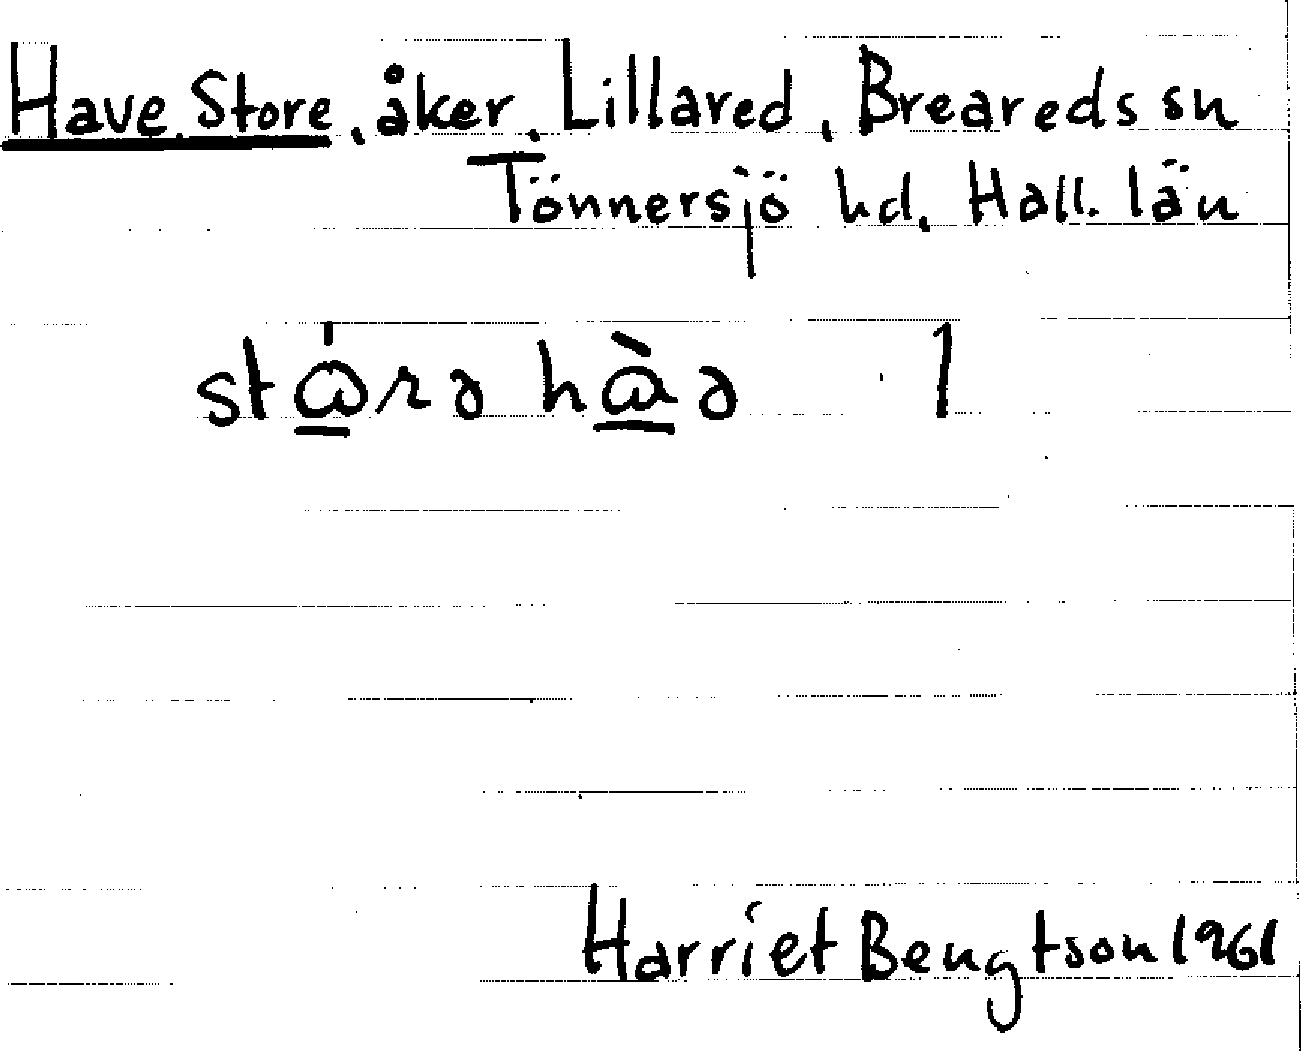 Have, Store, åker, Lillared, Breareds sn
Tönnersjö hd, Hall. län
stώ̲rə hὼ̲ə 1
Harriet Bengtson 1961